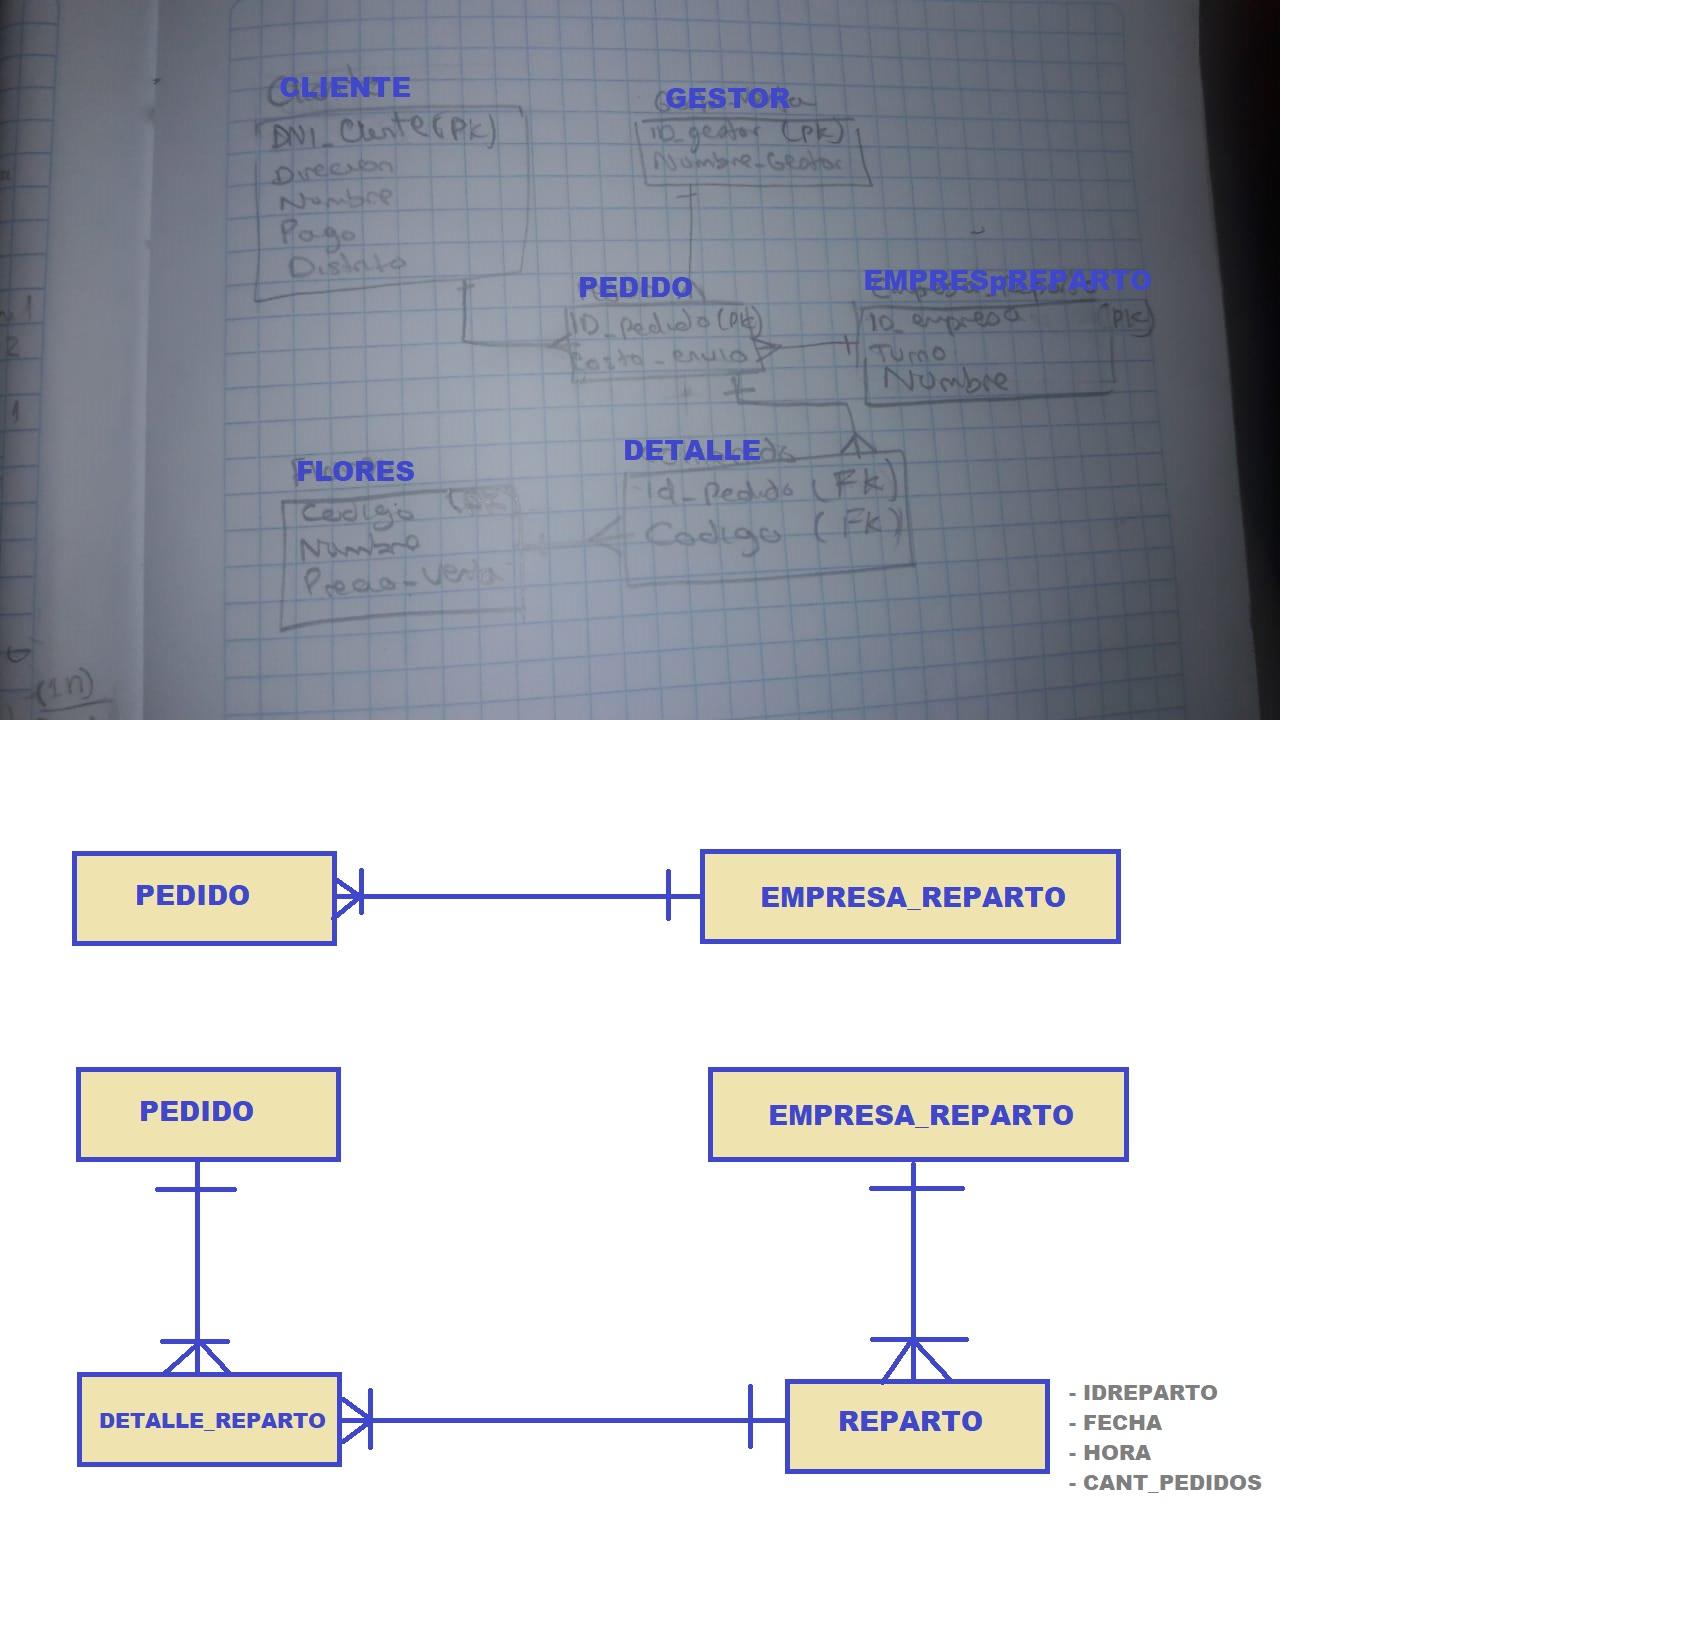 CLIENTE
DNI_Cliente (PK)
Direccion
Nombre
Pago
Distrito
GESTOR
ID_gestor (PK)
Nombre_Gestor
PEDIDO
ID_pedido (PK)
Costo_envio
EMPRESpREPARTO
ID_empresa (PK)
Turno
Nombre
FLORES
Codigo
Nombre
Precio_venta
DETALLE
Id_pedido (FK)
Codigo (FK)
1
2
1
(1n)
PEDIDO
EMPRESA_REPARTO
PEDIDO
EMPRESA_REPARTO
DETALLE_REPARTO
REPARTO
- IDREPARTO
- FECHA
- HORA
- CANT_PEDIDOS